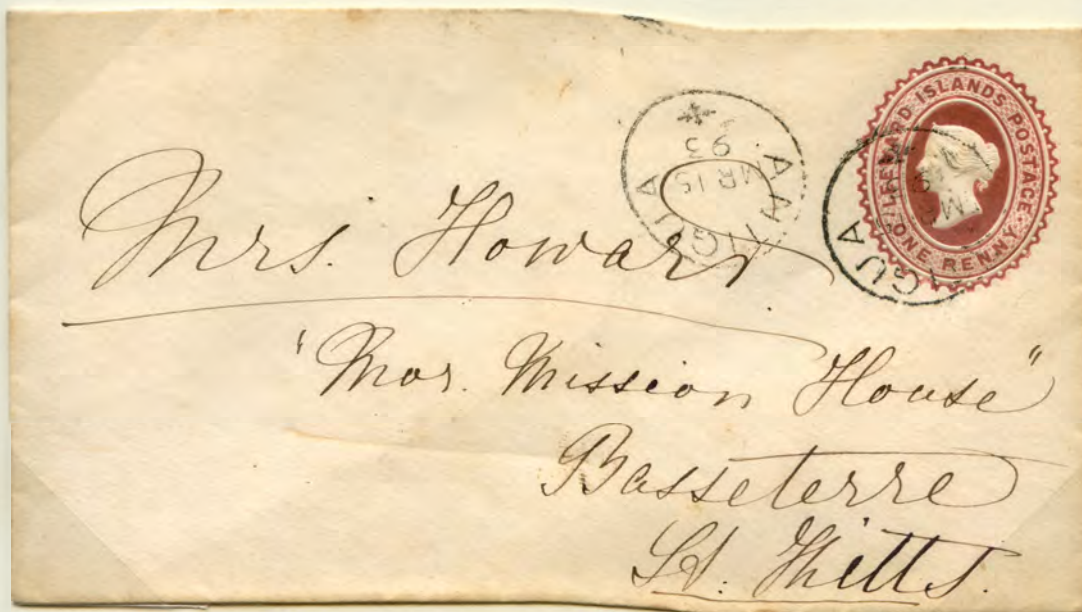 LEEWARD ISLANDS POSTAGE
ONE PENNY
ANTIGUA
MR 15
93
GUA
Mrs. Howard.
"Mor. Mission House"
Basseterre
St. Kitts.